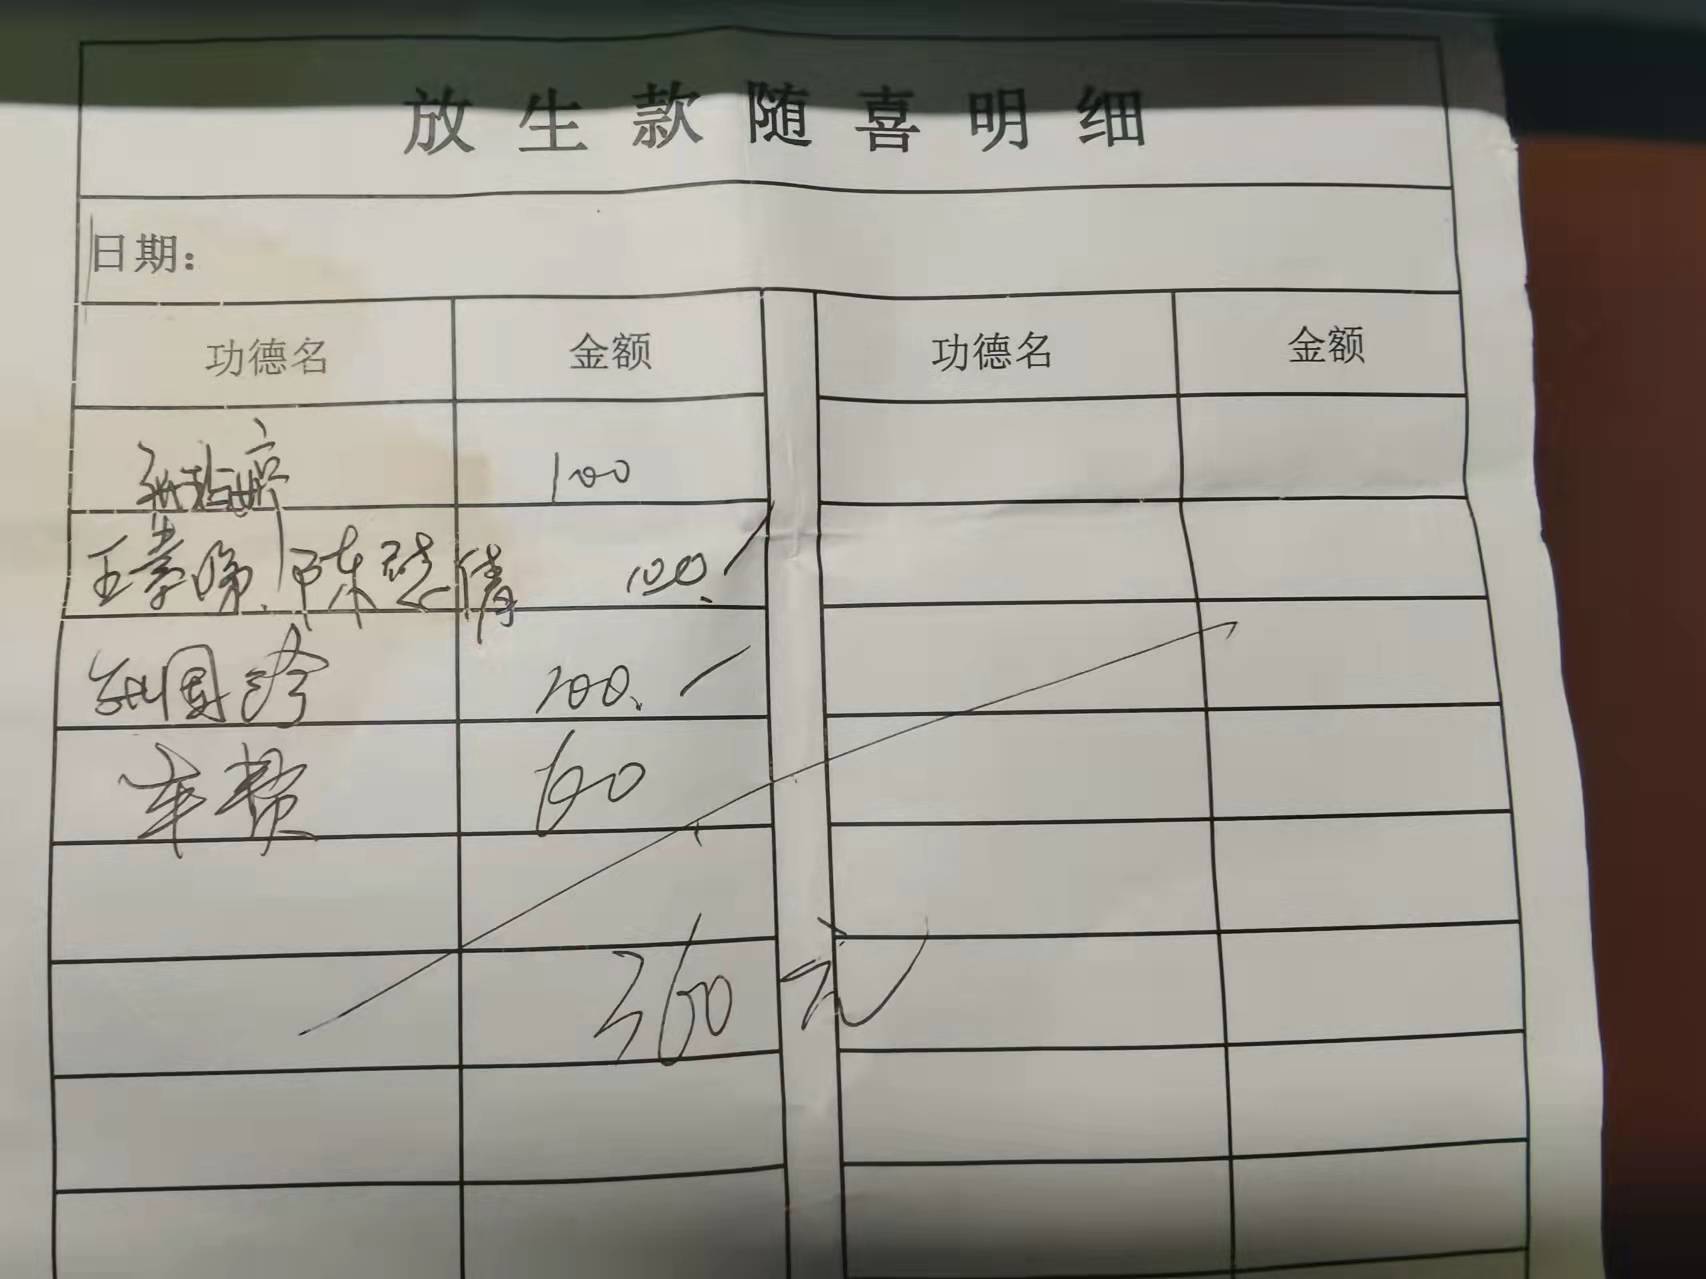 放生款随喜明细
日期：
功德名 金额 功德名 金额
100
王 陈 倩 100.
国珍 100.
车费 60
360元